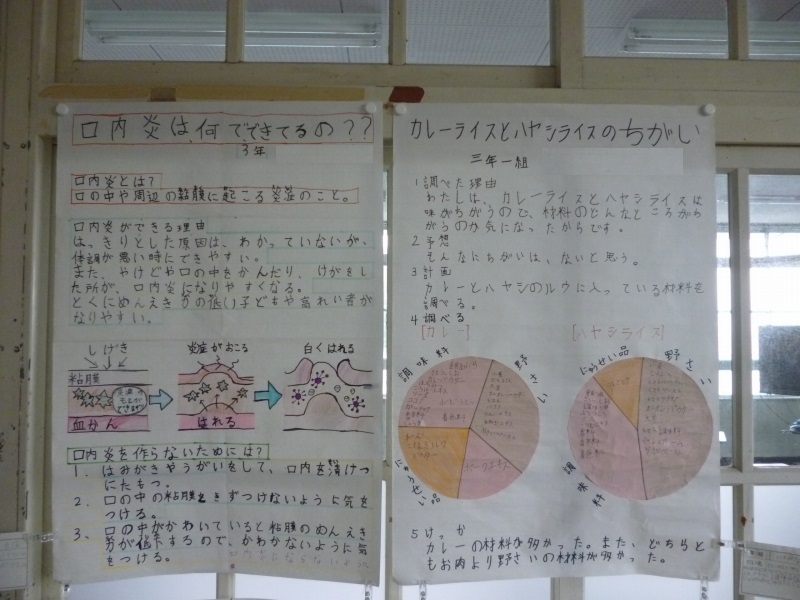 口内炎は何でできてるの??
3年
口内炎とは?
口の中や周辺の粘膜に起こる炎症のこと。
口内炎ができる理由
はっきりとした原因は、わかっていないが、
体調が悪い時にできやすい。
また、やけどや口の中をかんだり、けがをし
た所が、口内炎になりやすくなる。
とくにめんえき力の低い子どもや高れい者が
なりやすい。
しげき
粘膜
血かん
炎症がおこる
はれる
白くはれる
口内炎を作らないためには?
1. はみがきやうがいをして、口内を清けつ
にたもつ。
2. 口の中の粘膜をきずつけないように気を
つける。
3. 口の中がかわいていると粘膜のめんえき
力が低下するので、かわかないように気
をつける。
カレーライスとハヤシライスのちがい
三年一組
1 調べた理由
わたしは、カレーライスとハヤシライスは
味がちがうので、材料のどんなところがち
がうのか気になったからです。
2 予想
そんなにちがいは、ないと思う。
3 計画
カレーとハヤシのルウに入っている材料を
調べる。
4 調べる
[カレー]
調味料
野さい
にゅうせい品
[ハヤシライス]
にゅうせい品
野さい
調味料
5 けっか
カレーの材料が多かった。また、どちらと
もお肉より野さいの材料が多かった。